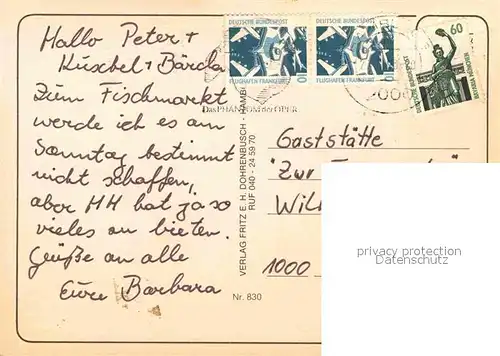 Hallo Peter +
Kuschel + Bärcla
Zum Fischmarkt
werde ich es am
Sonntag bestimmt
nicht schaffen,
aber HH hat ja so
vieles an bieten.
Grüße an alle
Eure Barbara
DEUTSCHE BUNDESPOST
FLUGHAFEN FRANKFURT
10
DEUTSCHE BUNDESPOST
FLUGHAFEN FRANKFURT
10
60
DEUTSCHE BUNDESPOST
Das PHANTOM der OPER
2000
VERLAG FRITZ E. H. DOHRENBUSCH · HAMB
RUF 040 - 24 59 70
Nr. 830
Gaststätte
"Zur
1000
privacy protection
Datenschutz